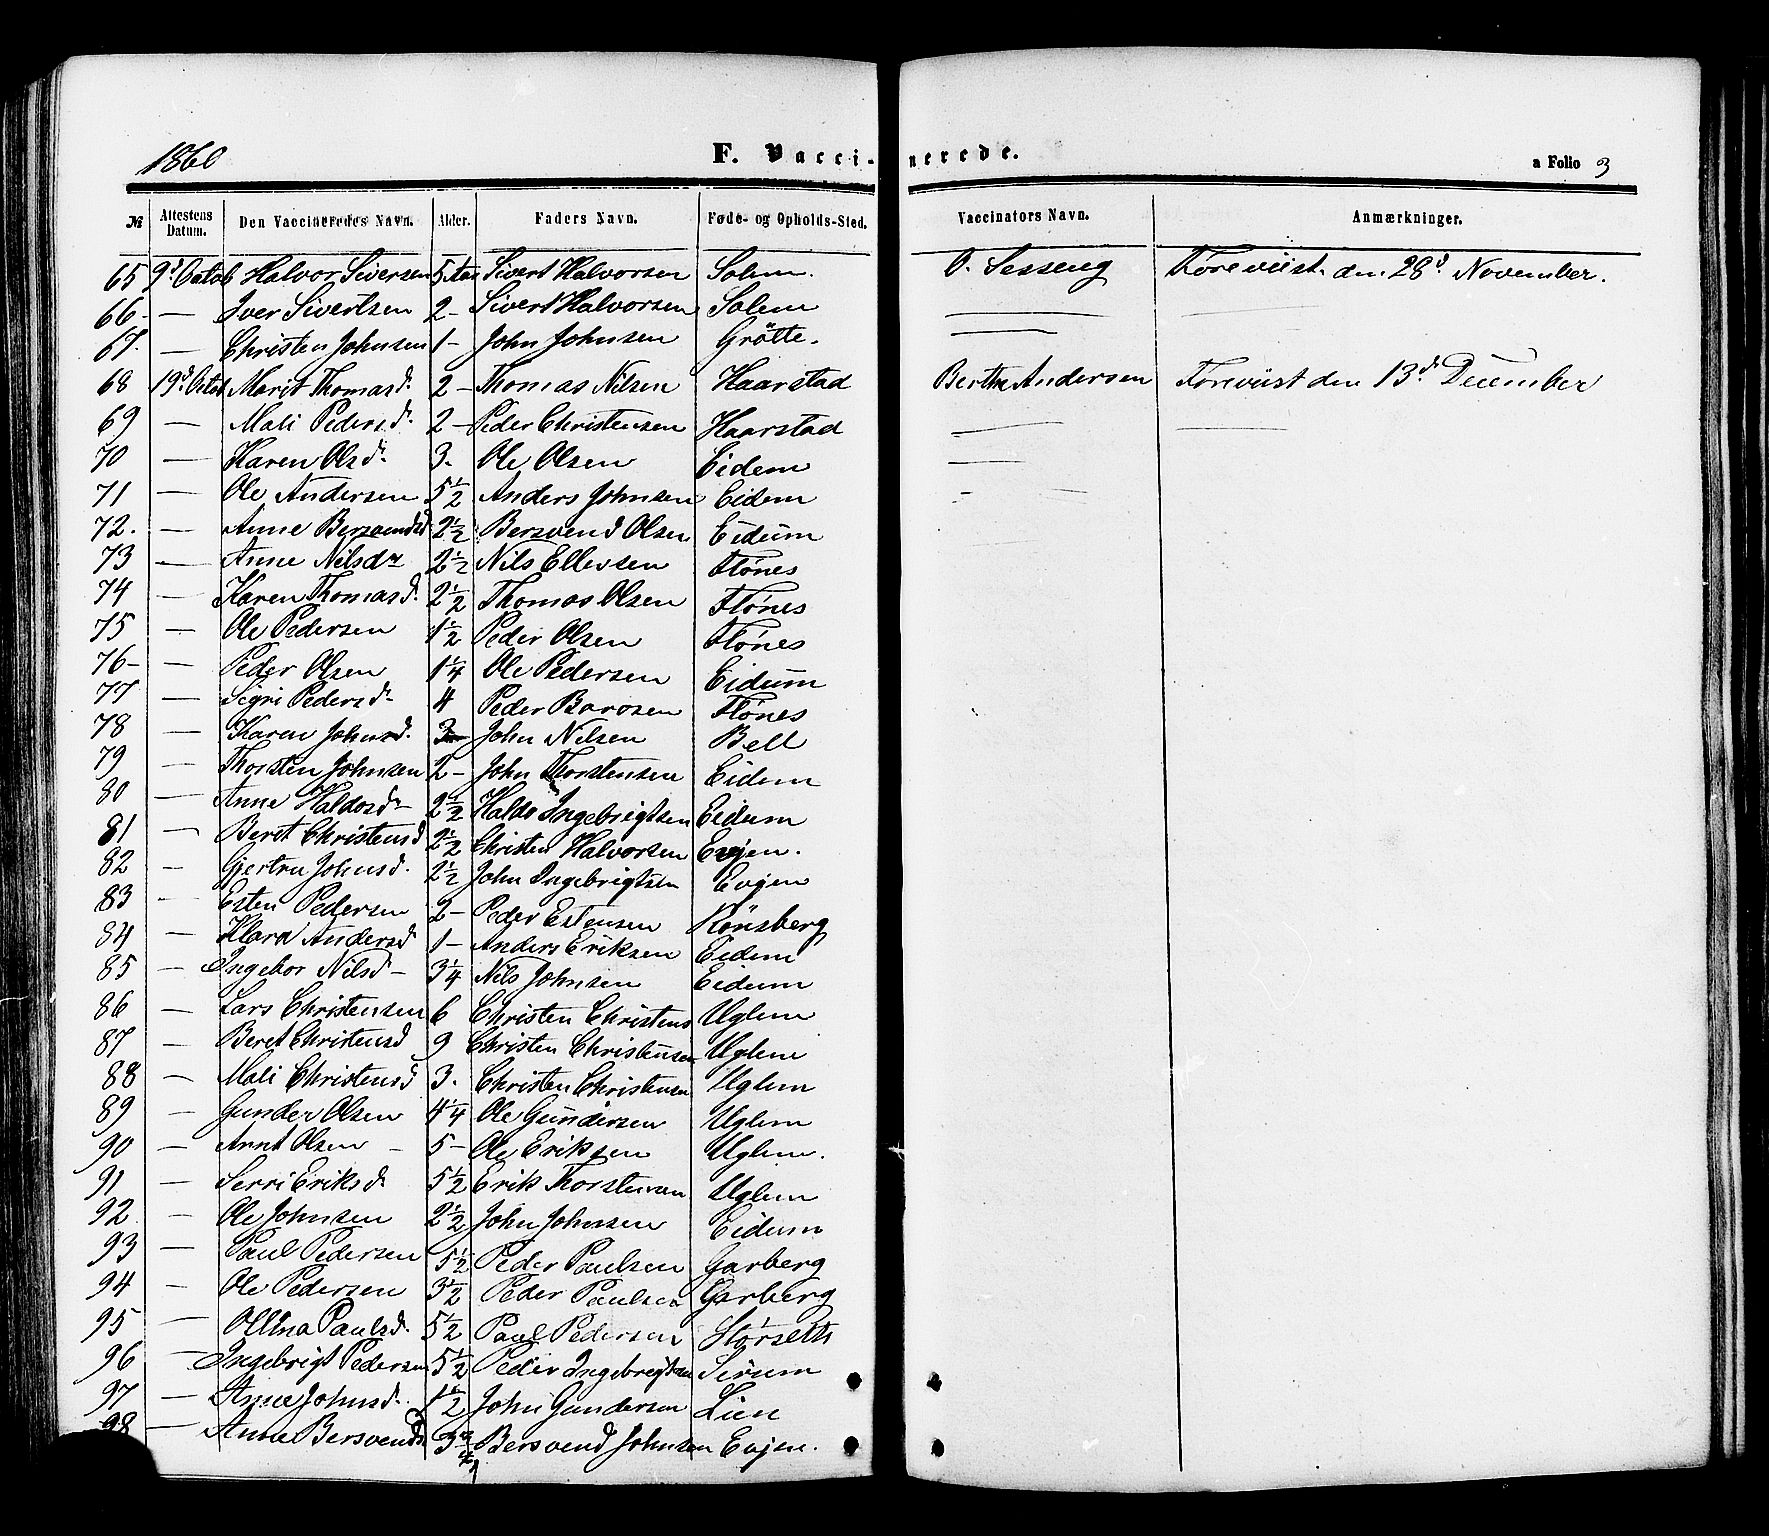 1860 F. Vaccinerede. a Folio 3
№ Attestens Datum. Den Vaccineredes Navn. Alder. Faders Navn. Føde- og Opholds-Sted. Vaccinators Navn. Anmærkninger.
65 9d Octob Halvor Siversen 5 Sivert Halvorsen Solem. O. Sesseng Foreviist den 28d November.
66 - — Iver Sivertsen 2 - Sivert Halvorsen Solem — —
67. — Christen Johnsen 1 - John Johnsen Grötte. —
68 19d Octob Marit Thomasd. 2 - Thomas Nilsen Haarstad Berthe Andersen Foreviist den 13d December
69 — Mali Pedersd. 2 - Peder Christensen Haarstad — —
70 — Karen Olsd. 3. Ole Olsen Eidem —
71 — Ole Andersen 5½ Anders Johnsen Eidem
72. — Anne Bersvendsd 2½ Bersvend Olsen Eidum
73 — Anne Nilsdr 2½ Nils Ellevsen Flönes
74 — Karen Thomasd. 2½ Thomas Olsen Flönes
75 — Ole Pedersen 1½ Peder Olsen Flönes
76 - — Peder Olsen 1¼ Ole Pedersen Eidum
77 — Sigri Pedersd. 4 Peder Barosen Flönes
78 — Karen Johnsd. 3 John Nilsen Bell
79 — Thorsten Johnsen 2 - John Thorstensen Eidem
80 — Anne Haldosd - 2½ Haldo Ingebrigtsen Eidum
81 — Beret Christensd 2½ Christen Halvorsen Evjen.
82 — Gjertru Johnsd. 2½ John Ingebrigtsen Evjen
83 - Esten Pedersen 2 - Peder Estensen Rönsberg
84 — Klara Andersd 1 - Anders Eriksen Eidem
85 — Ingebor Nilsd - 3¼ Nils Johnsen Eidum
86 — Lars Christensen 6 Christen Christens Uglem
87 — Beret Christensd 9 Christen Christensen Uglem
88 — Mali Christensd 3. Christen Christensen Uglem
89 — Gunder Olsen 4¼ Ole Gundersen Uglem
90 — Arnt Olsen - 5 - Ole Eriksen Uglem.
91 — Serri Eriksd. 5½ Erik Thorstensen Uglem
92. — Ole Johnsen 2½ John Johnsen Eidum
93 — Paul Pedersen 5½ Peder Paulsen Garberg
94 — Ole Pedersen 3½ Peder Paulsen Garberg
95 — Ollina Paulsd. 5½ Paul Pedersen Störseth
96 — Ingebrigt Pedersen 5½ Peder Ingebrigtsen Sirum
97 — Anne Johnsd. 1½ John Gundersen Lien
98 — Anne Bersvendsd 3¾ Bersvend Johnsen Evjen.